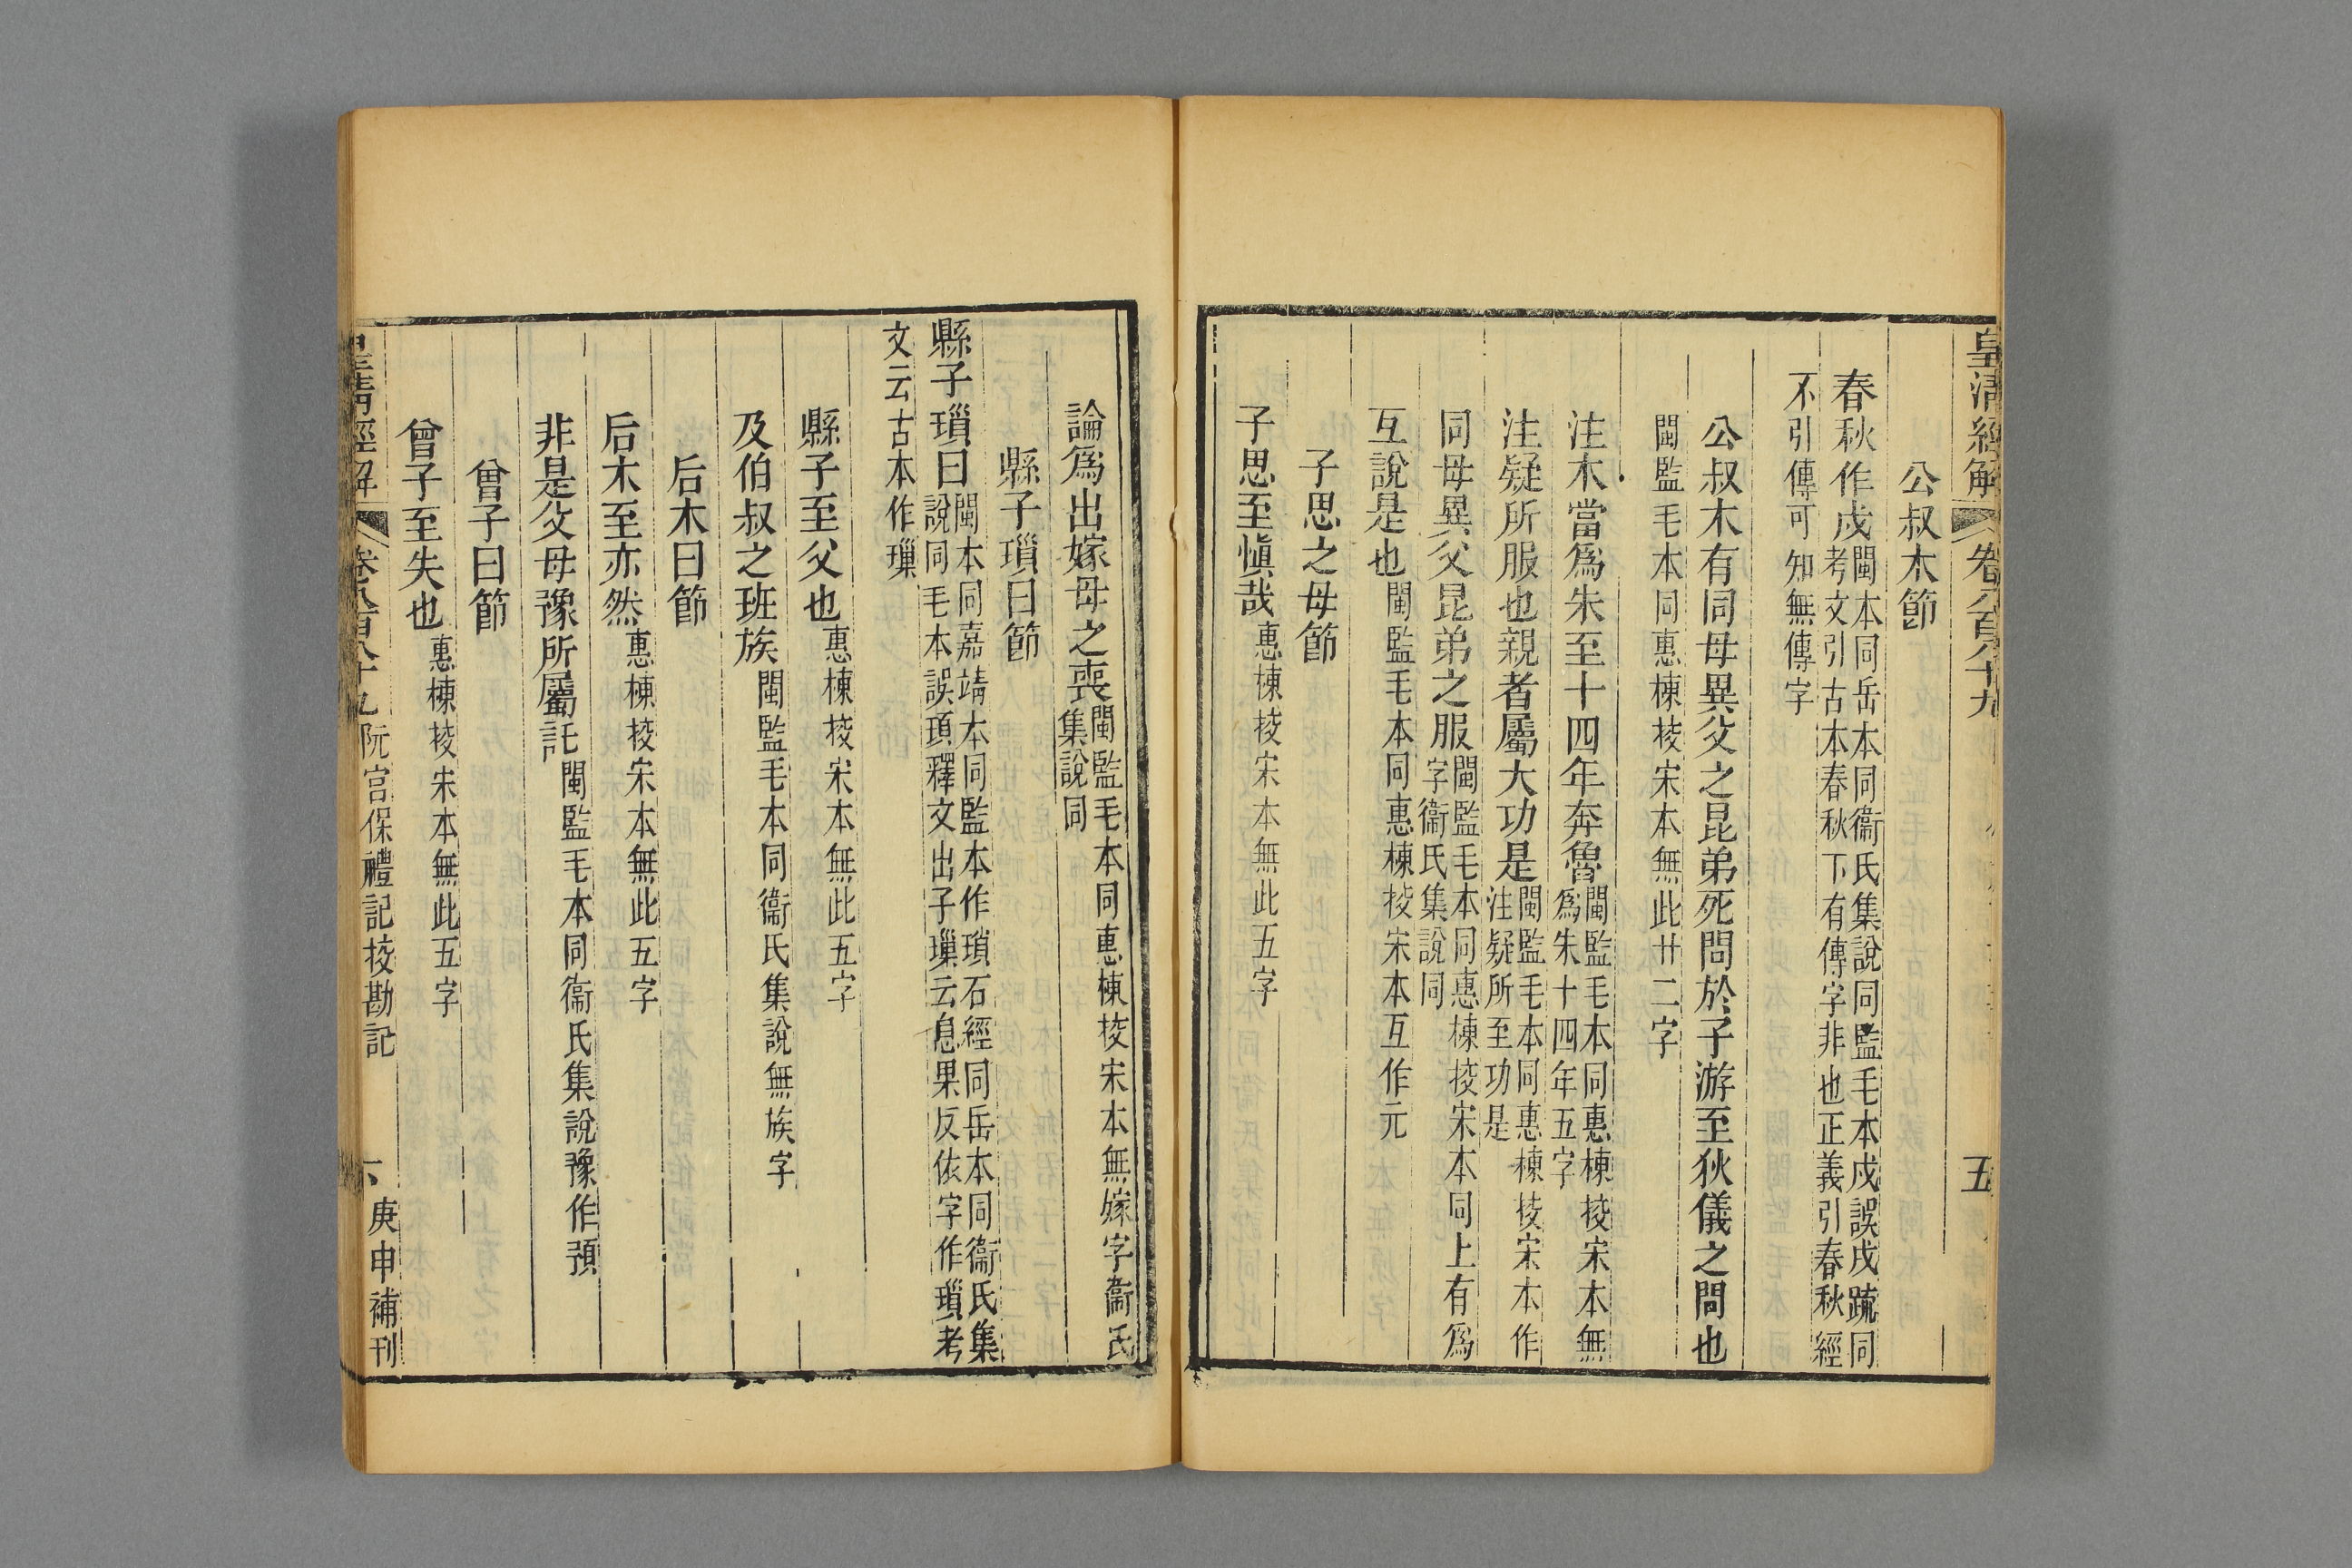 皇清經解 卷八百八十九 五
公叔木節
春秋作戍閩本同岳本同衞氏集說同監毛本戍誤戌疏同
考文引古本春秋下有傳字非也正義引春秋經
不引傳可知無傳字
公叔木有同母異父之昆弟死問於子游至狄儀之問也
閩監毛本同惠棟挍宋本無此廿二字
注木當爲朱至十四年奔魯閩監毛本同惠棟挍宋本無
爲朱十四年五字
注疑所服也親者屬大功是閩監毛本同惠棟挍宋本作
注疑所至功是
同母異父昆弟之服閩監毛本同惠棟挍宋本同上有爲
字衞氏集說同
互說是也閩監毛本同惠棟挍宋本互作元
子思之母節
子思至愼哉惠棟挍宋本無此五字
論爲出嫁母之喪閩監毛本同惠棟挍宋本無嫁字衞氏
集說同
縣子瑣曰節
縣子瑣曰閩本同嘉靖本同監本作瑣石經同岳本同衞氏集
說同毛本誤頊釋文出子璅云息果反依字作瑣考
文云古本作璅
縣子至父也惠棟挍宋本無此五字
及伯叔之班族閩監毛本同衞氏集說無族字
后木曰節
后木至亦然惠棟挍宋本無此五字
非是父母豫所屬託閩監毛本同衞氏集說豫作預
曾子曰節
曾子至失也惠棟挍宋本無此五字
皇淸經解 卷八百八十九 阮宮保禮記挍勘記 庚申補刊